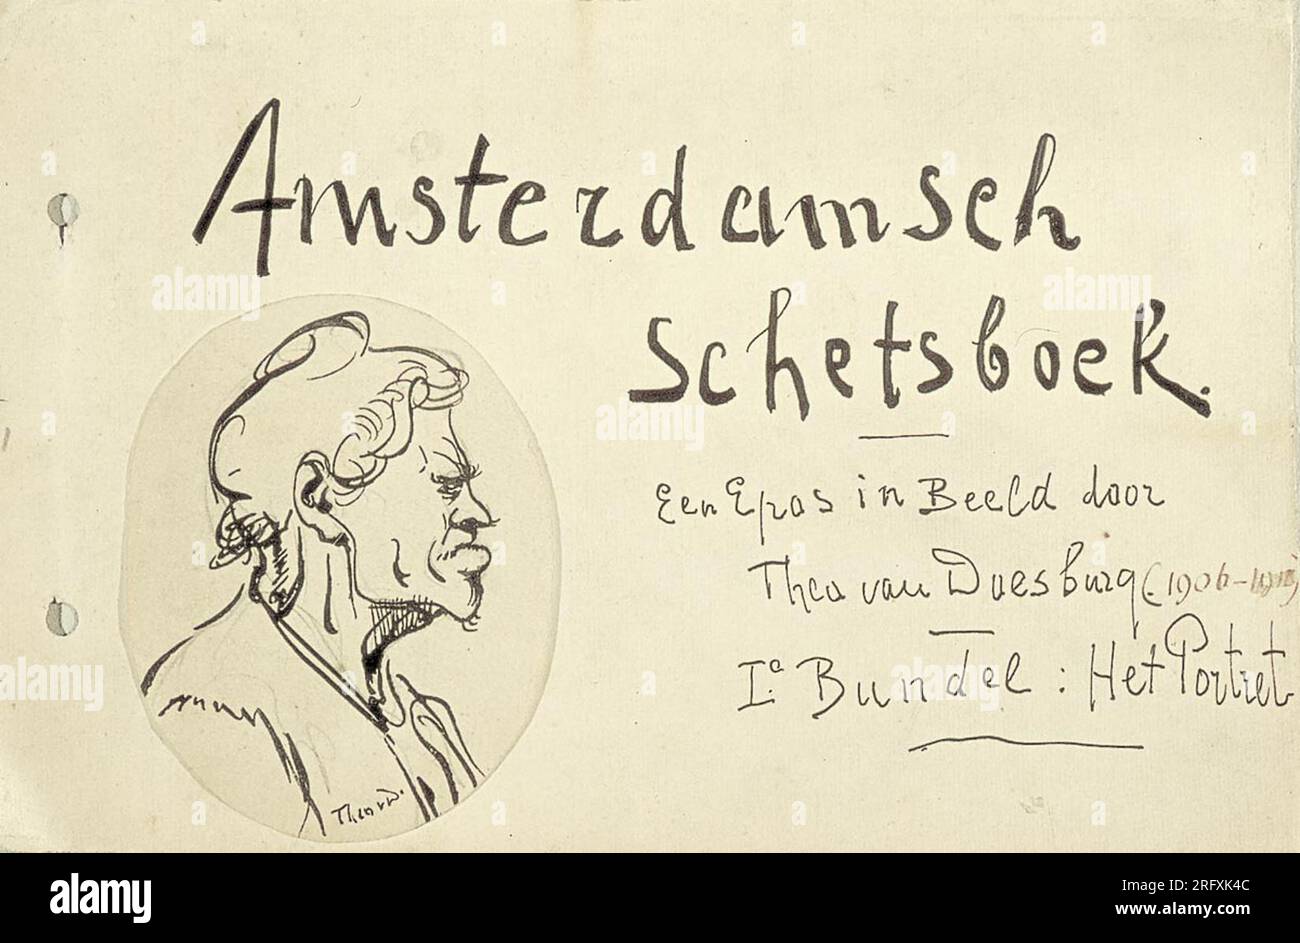 Amsterdamsch
Schetsboek.
Een Epos in Beeld door
Theo van Doesburg (1906-1910)
Ie Bundel: Het Portret
Theo v D.
alamy
Image ID: 2RFXK4C
www.alamy.com